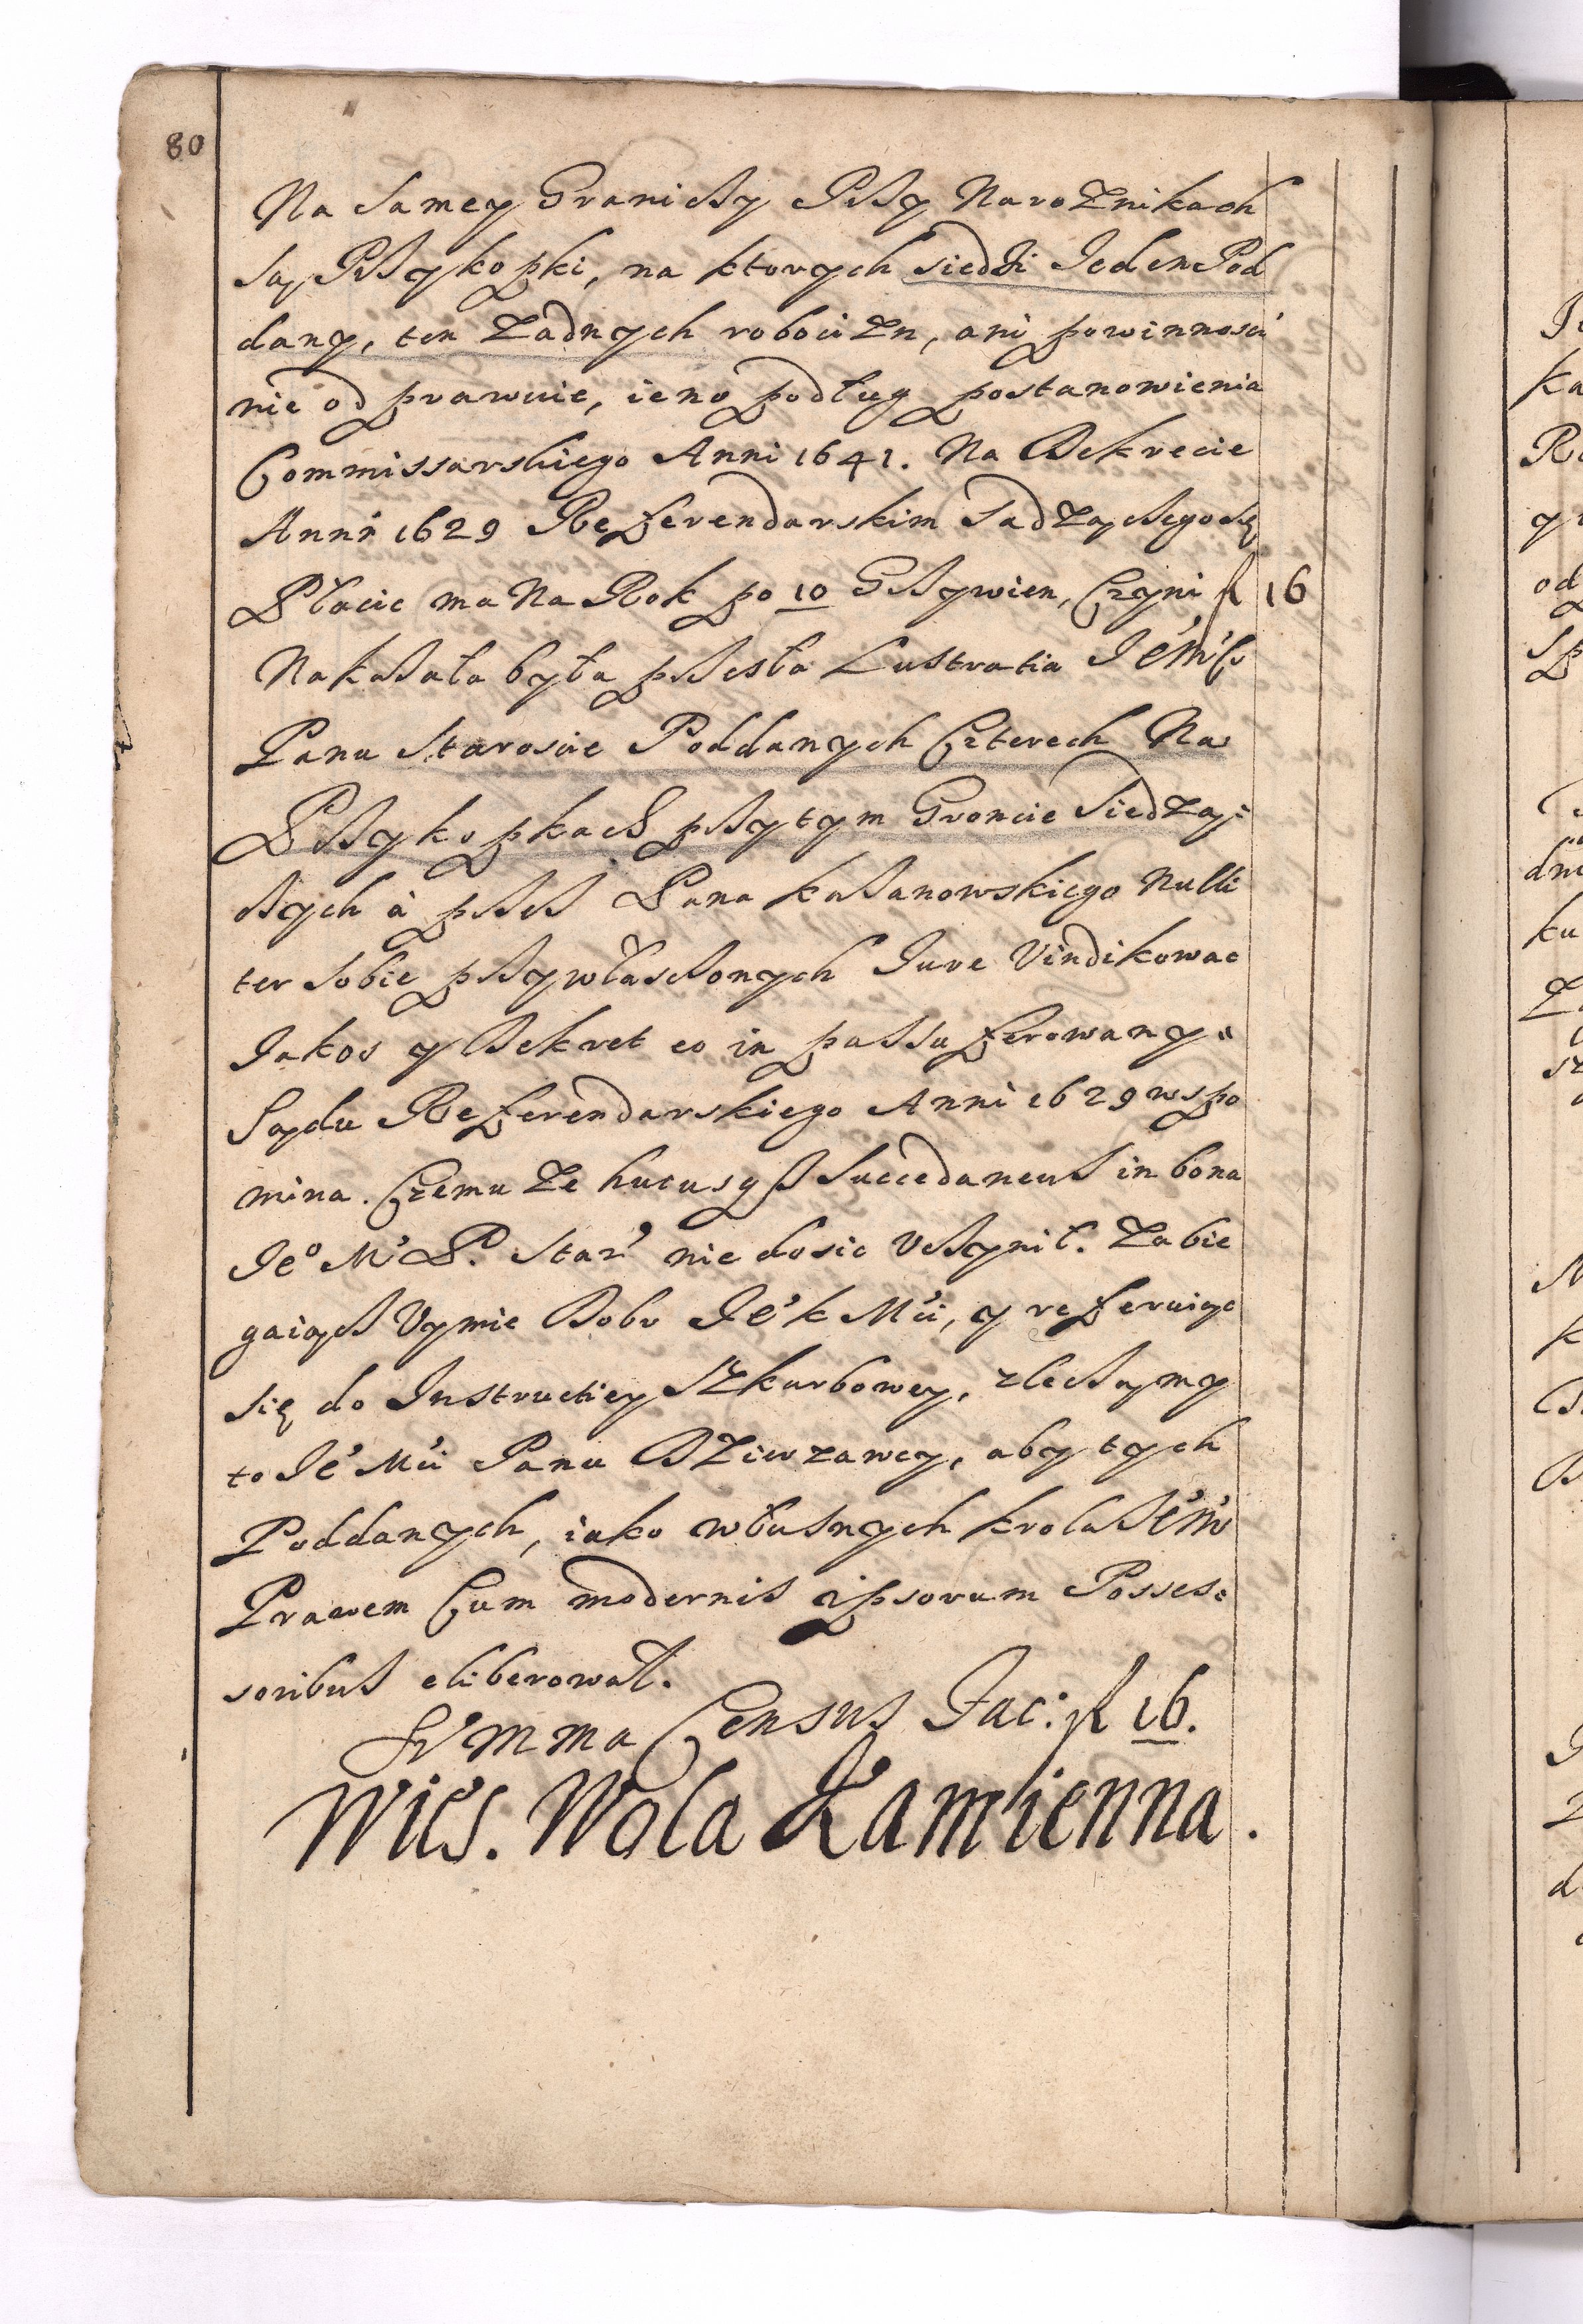 80
Na samey Graniczy Przy Narożnikach
są, Przykopki, na ktorych siedzi Jeden Pod
dany, ten żadnych robocizn, ani powinnosci
nie od prawuie, ieno podług postanowienia
Commissarskiego Anni 1641. Na Dekrecie
Anni 1629 Referendarskim sadzającego się
Płacic ma Na Rok po 10 Grzywien, Czyni fl 16
Nakazała była przesła Lustratia
Panu Staroscie Poddanych Czterech Na
Przykopkach przytym Groncie siedzą:
czych à przez Pana kazanowskiego Nulli
ter sobie przywłasczonych Jure Vindikowac
Jakos y Dekret eo in passu ferowany
Sądu Referendarskiego Anni 1629 wspo
mina. Czemu że hucusq succedaneus in bona
Jeo M P. Star nie dosic Vczynił. Zabie
gaiącz Vymie Dobr Je k Mci, y referuiąc
się do Instructiey Szkarbowey, zleczymy
to Je Mci Panu Dzierzawcy, aby tych
Poddanych, iako własnych krola
Prawem Cum modernis ipsorum Posses:
soribus eliberował.
Summa Census Fac: fl 16.
Wies. Wola Kamienna.